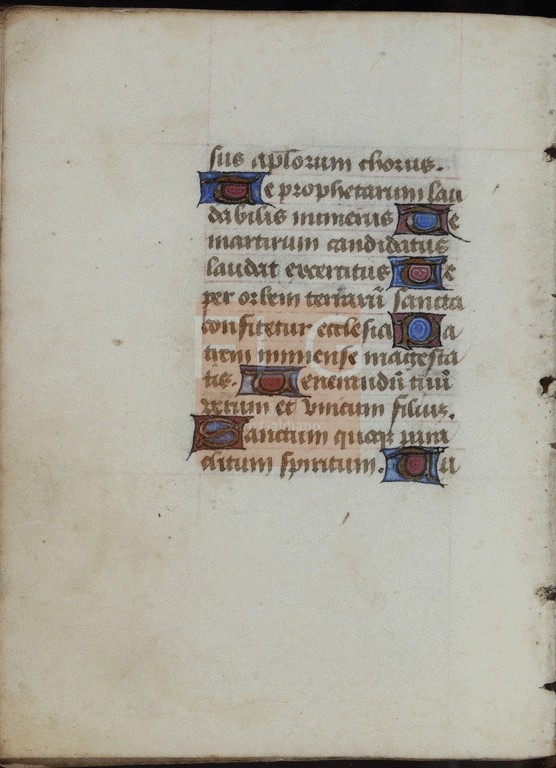 sus aplorum chorus.
Te prophetarum lau
dabilis numerus Te
martirum candidatus
laudat exercitus Te
per orbem terrarū sancta
confitetur ecclesia Pa
trem immense magesta
tis. Venerandū tuū
verum et vnicum filius.
Sanctum quoqz para
clitum spiritum. Tu
FLG